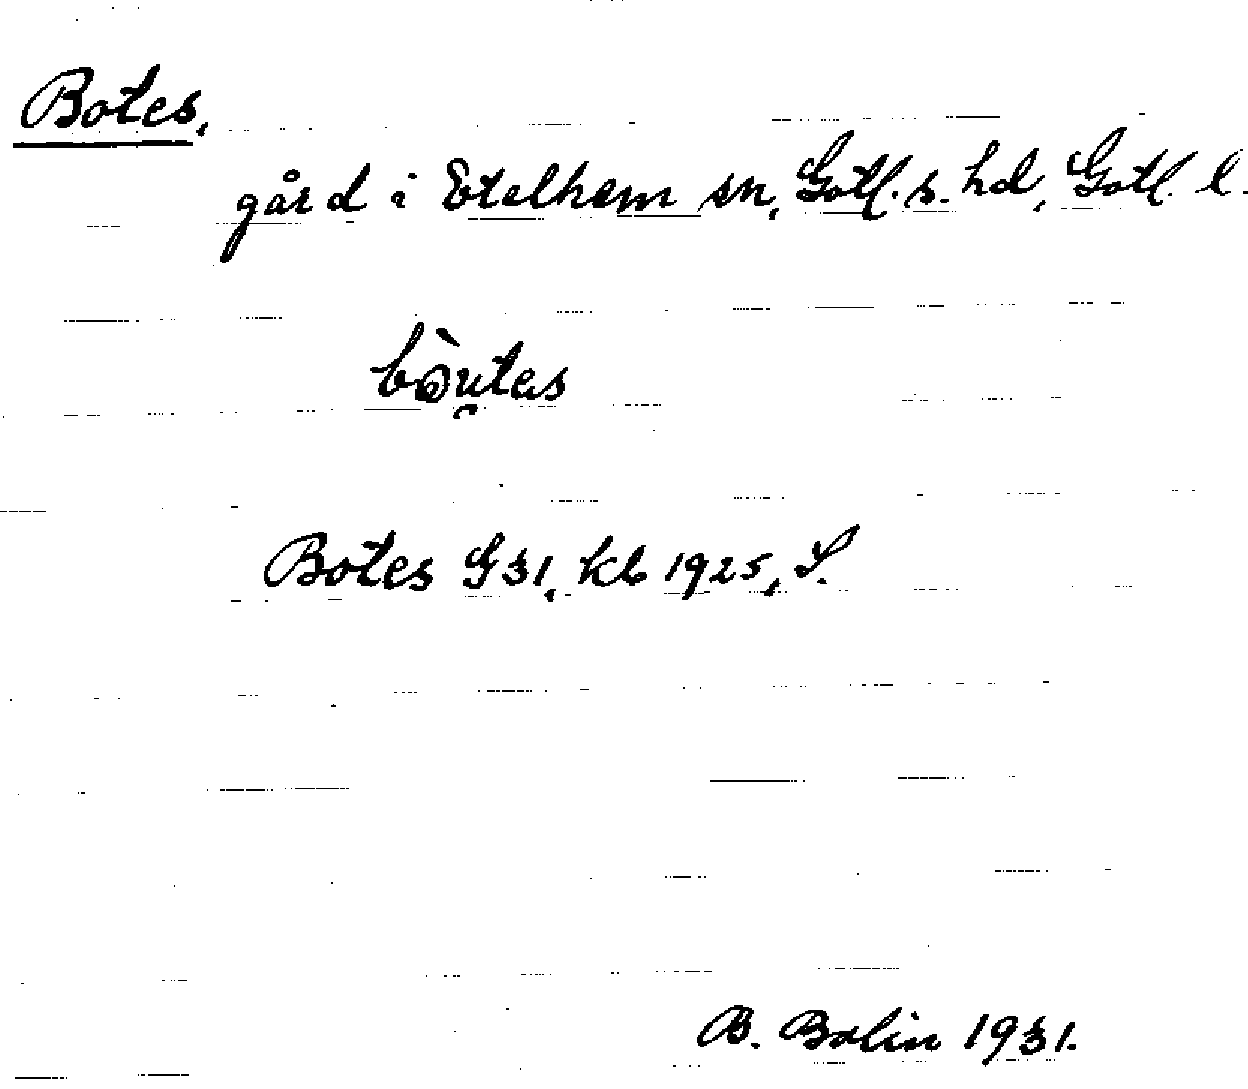 Botes,
gård i Etelhem sn, Gotl. s. hd, Gotl. l.
bòu̯tas
Botes G 31, kb 1925, S.
B. Bolin 1931.